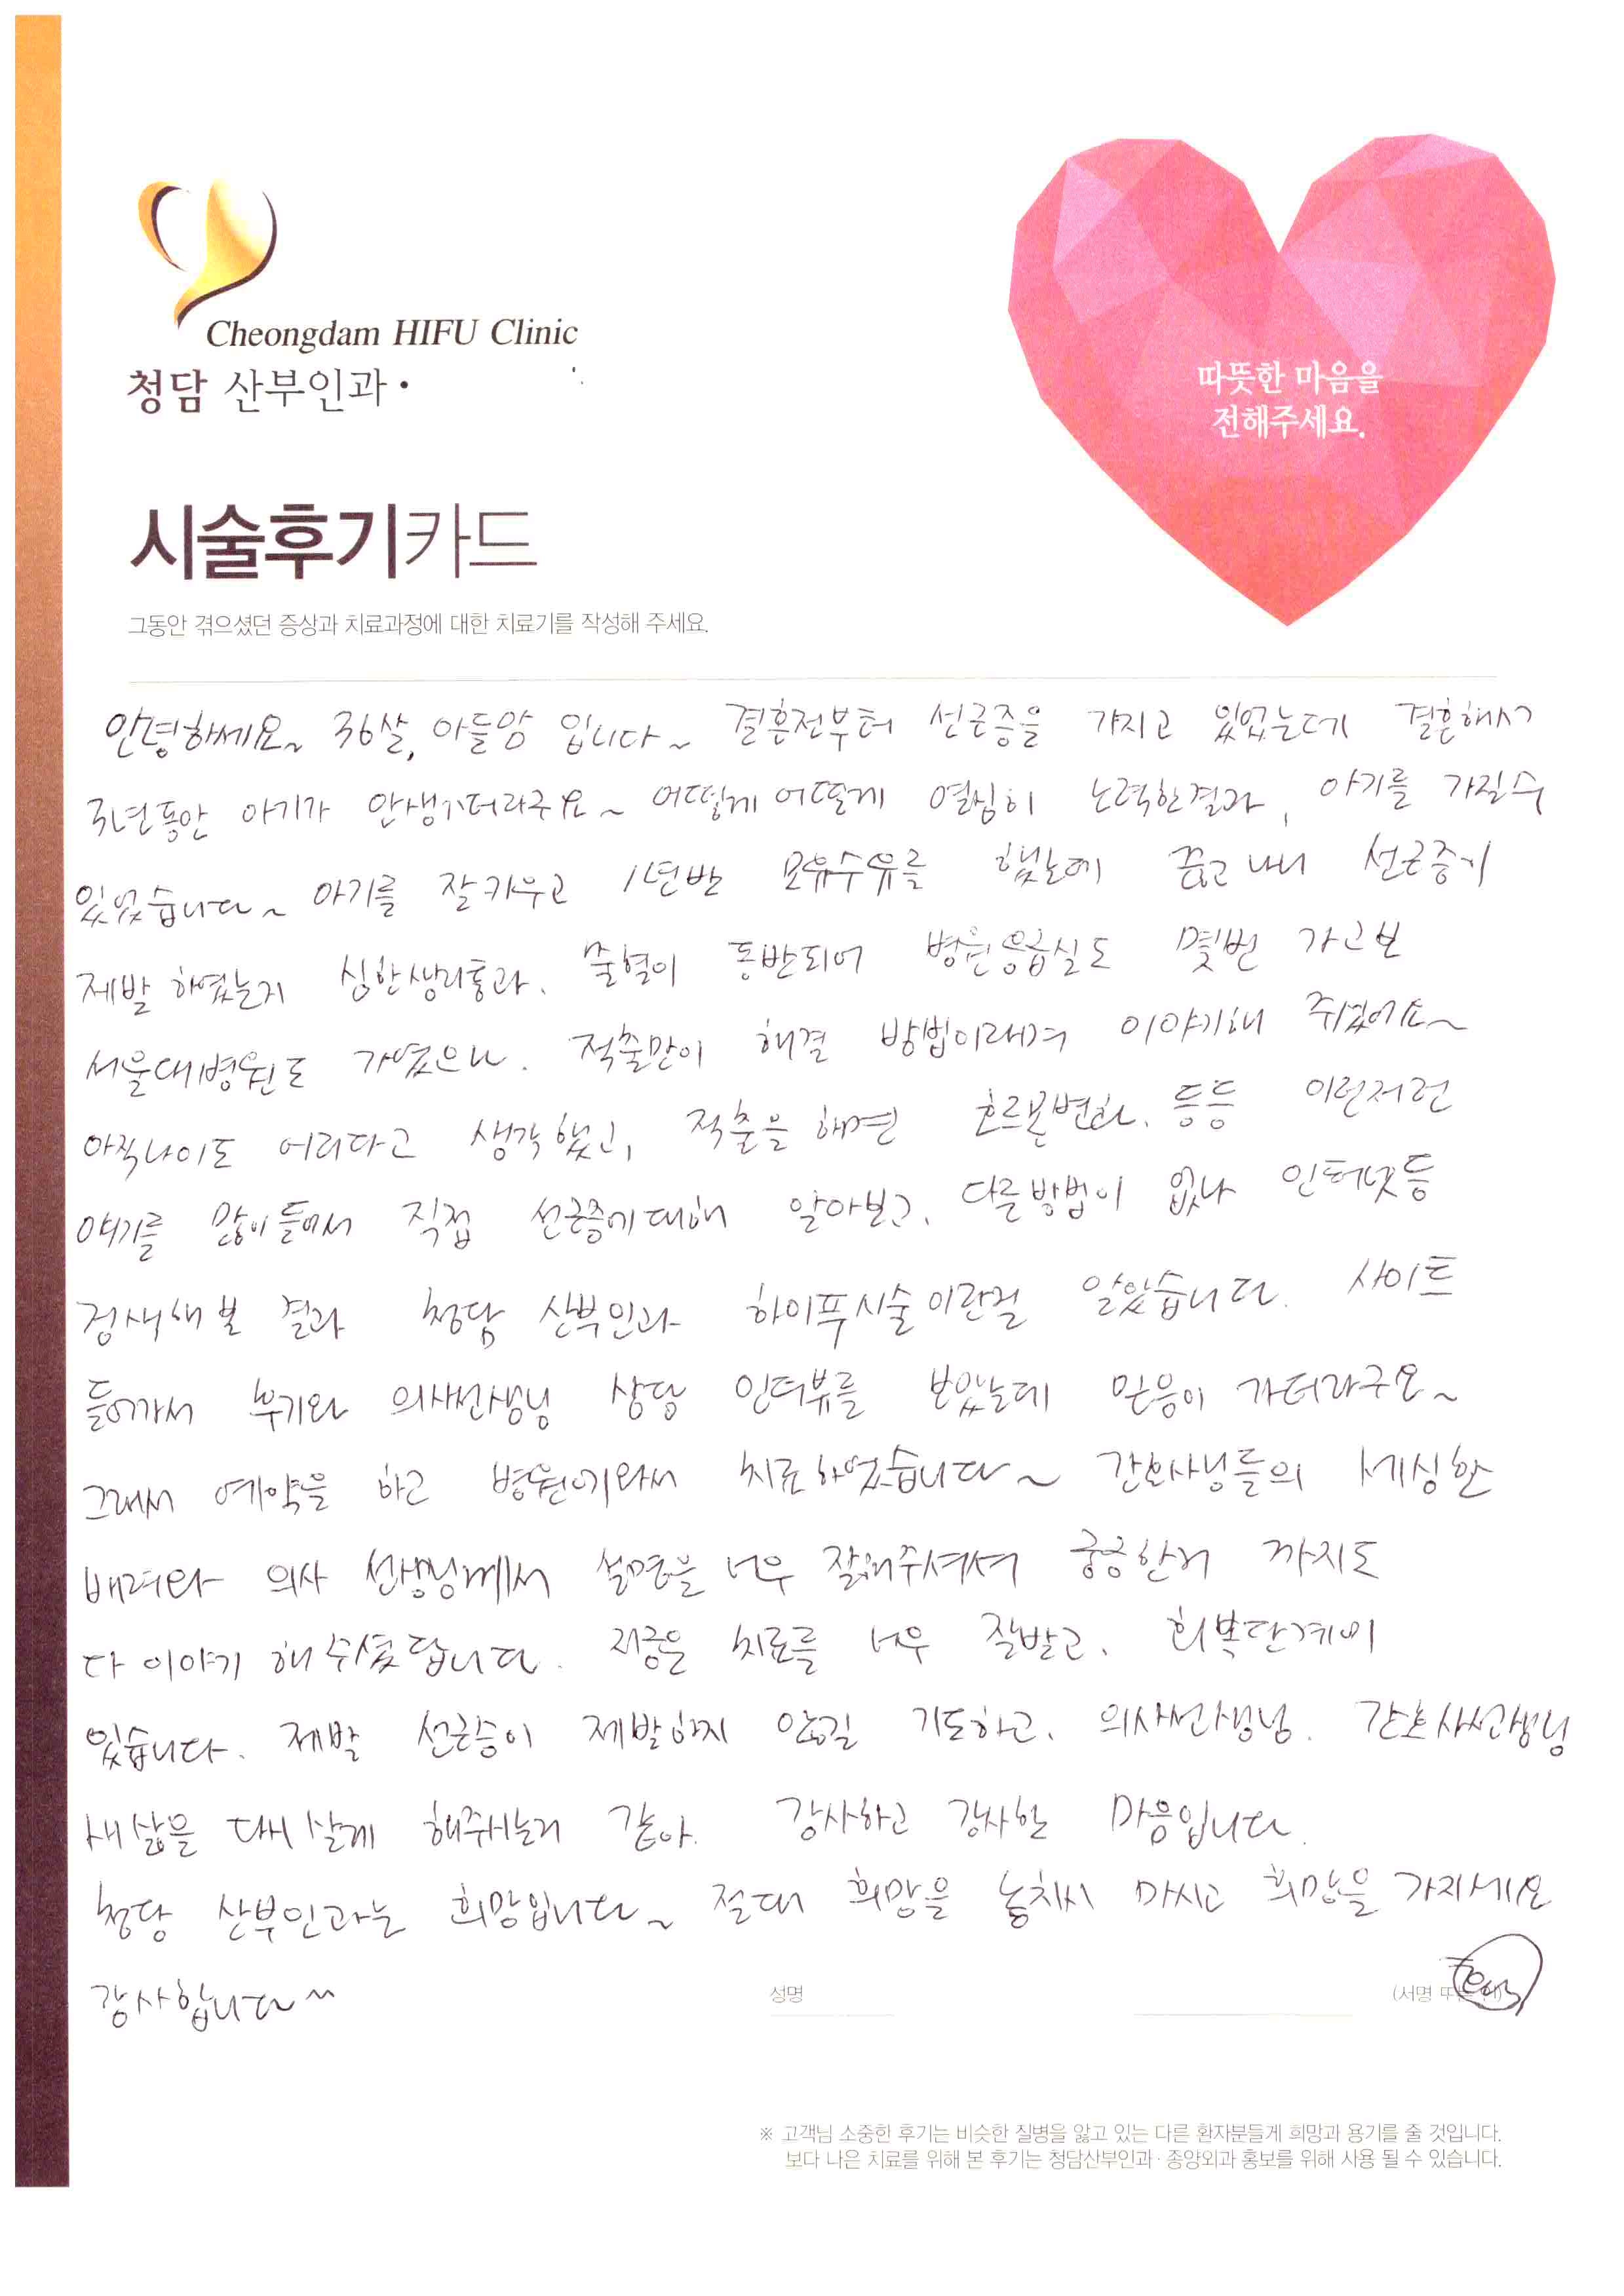 Cheongdam HIFU Clinic
청담 산부인과·
따뜻한 마음을
전해주세요.
시술후기카드
그동안 겪으셨던 증상과 치료과정에 대한 치료기를 작성해 주세요.
안녕하세요~ 36살, 아들맘 입니다~ 결혼전부터 선근증을 가지고 있었는데 결혼해서
3년동안 아기가 안생기더라구요~ 어떻게 어떻게 열심히 노력한결과, 아기를 가질수
있었습니다~ 아기를 잘키우고 1년반 모유수유를 했는데 끊고 나니 선근증이
제발 하였는지 심한생리통과. 출혈이 동반되어 병원응급실도 몇번 가고보
서울대병원도 가였으나. 적출만이 해결 방법이라며 이야기해 주셨어요~
아직나이도 어리다고 생각했고, 적출을 하면 호르몬변화. 등등 이런저런
얘기를 많이들어서 직접 선근증에대해 알아보고. 다른방법이 없나 인터넷등
검색해본 결과 청담 산부인과 하이푸시술이란걸 알았습니다. 사이트
들어가서 후기와 의사선생님 상담 인터뷰를 보았는데 믿음이 가더라구요~
그래서 예약을 하고 병원에와서 치료하였습니다~ 간호사님들의 세심한
배려와 의사 선생님께서 설명을 너무 잘해주셔서 궁금한거 까지도
다 이야기 해 주셨답니다. 지금은 치료를 너무 잘받고. 회복단계에
있습니다. 제발 선근증이 제발하지 않길 기도하고. 의사선생님. 간호사선생님
새삶을 다시 살게 해주시는거 같아. 감사하고 감사한 마음입니다.
청담 산부인과는 희망입니다~ 절대 희망을 놓치시 마시고 희망을 가지세요
감사합니다~
성명
(서명
※ 고객님 소중한 후기는 비슷한 질병을 앓고 있는 다른 환자분들게 희망과 용기를 줄 것입니다.
보다 나은 치료를 위해 본 후기는 청담산부인과· 종양외과 홍보를 위해 사용 될 수 있습니다.